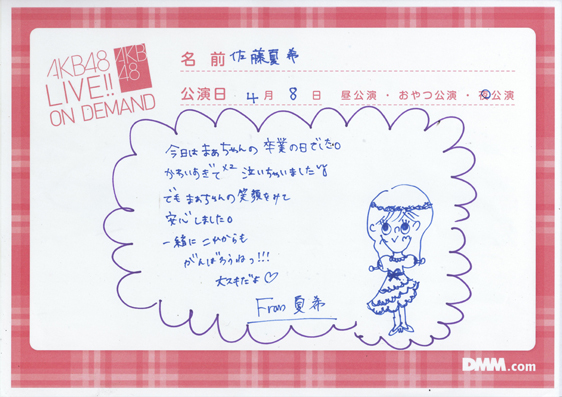 AKB48
LIVE!!
ON DEMAND
AKB
48
名前 佐藤夏希
公演日 4月8日 昼公演・おやつ公演・夜公演
今日はまぁちゃんの卒業の日でした。
かわいすぎて×2 泣いちゃいました
でもまぁちゃんの笑顔をみて
安心しました。
一緒にこれからも
がんばろうねっ!!!
大スキだよ♡
From 夏希
DMM.com